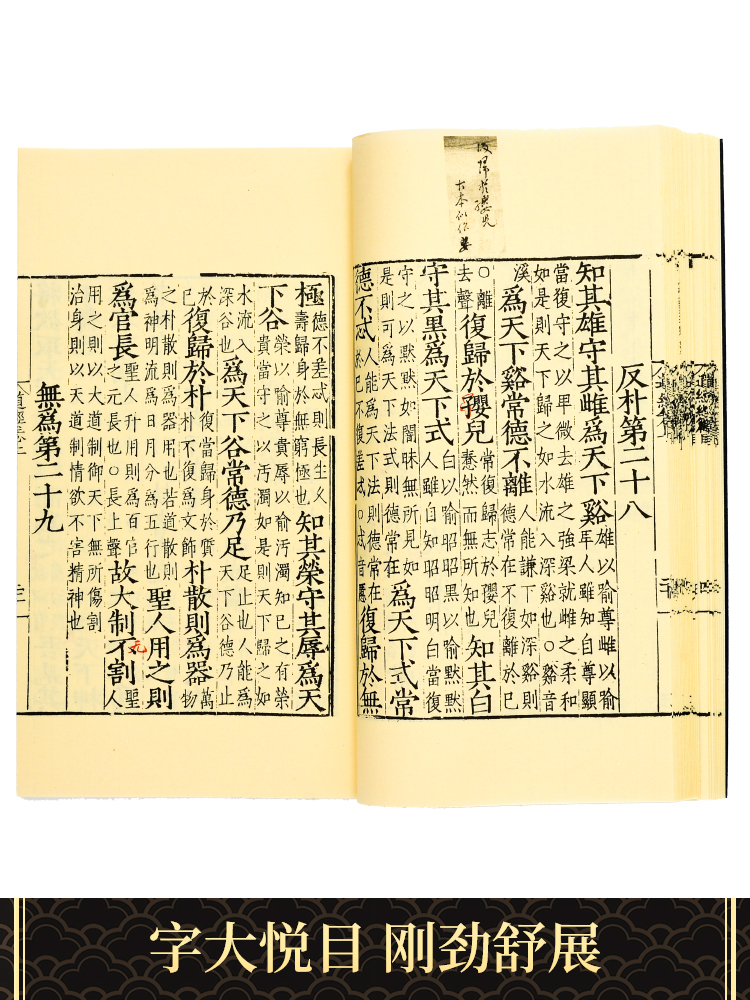 反朴第二十八
知其雄守其雌爲天下谿雄以喻尊雌以喻卑人雖知自尊顯
當復守之以卑微去雄之強梁就雌之柔和如是則天下歸之如水流入深谿也○谿音
溪爲天下谿常德不離人能謙下如深谿則德常在不復離於已
○離去聲復歸於孾兒常復歸志於孾兒惷然而無所知也知其白
守其黑爲天下式白以喻昭昭黑以喻黙黙人雖自知昭昭明白當復
守之以黙黙如闇昧無所見如是則可爲天下法式則德常在爲天下式常
德不忒人能爲天下法則德常在於已不復差忒○忒音慝復歸於無
極德不差忒則長生久壽歸身於無窮極也知其榮守其辱爲天
下谷榮以喻尊貴辱以喻汚濁知已之有榮貴當守之以汚濁如是則天下歸之如
水流入深谷也爲天下谷常德乃足足止也人能爲天下谷德乃止
於已復歸於朴復當歸身於質朴不復爲文飾朴散則爲器萬物
之朴散則爲器用也若道散則爲神明流爲日月分爲五行也聖人用之則
爲官長聖人升用則爲百官之元長也○長上聲故大制不割聖人
用之則以大道制御天下無所傷割治身則以天道制情欲不害精神也
無爲第二十九
字大悦目 刚劲舒展